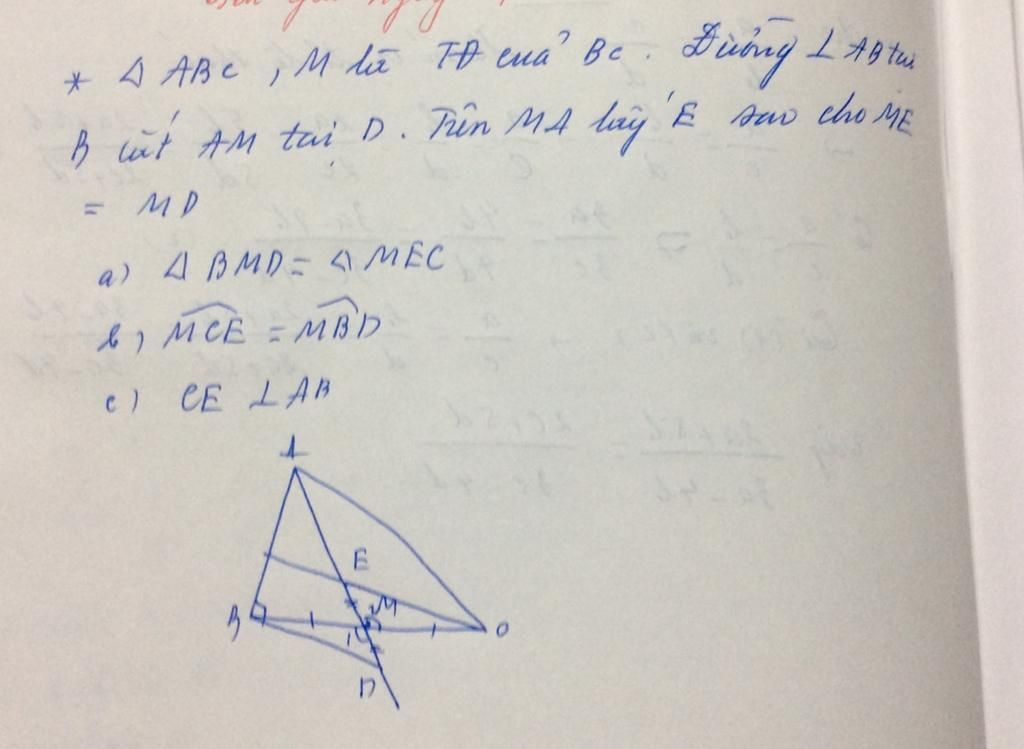 * Δ ABC, M là TĐ của BC. Đường ⊥ AB tại
B cắt AM tại D. Trên MA lấy E sao cho ME
= MD
a) Δ BMD = Δ MEC
b, MCE = MBD
c) CE ⊥ AB
A
E
M
B
C
D